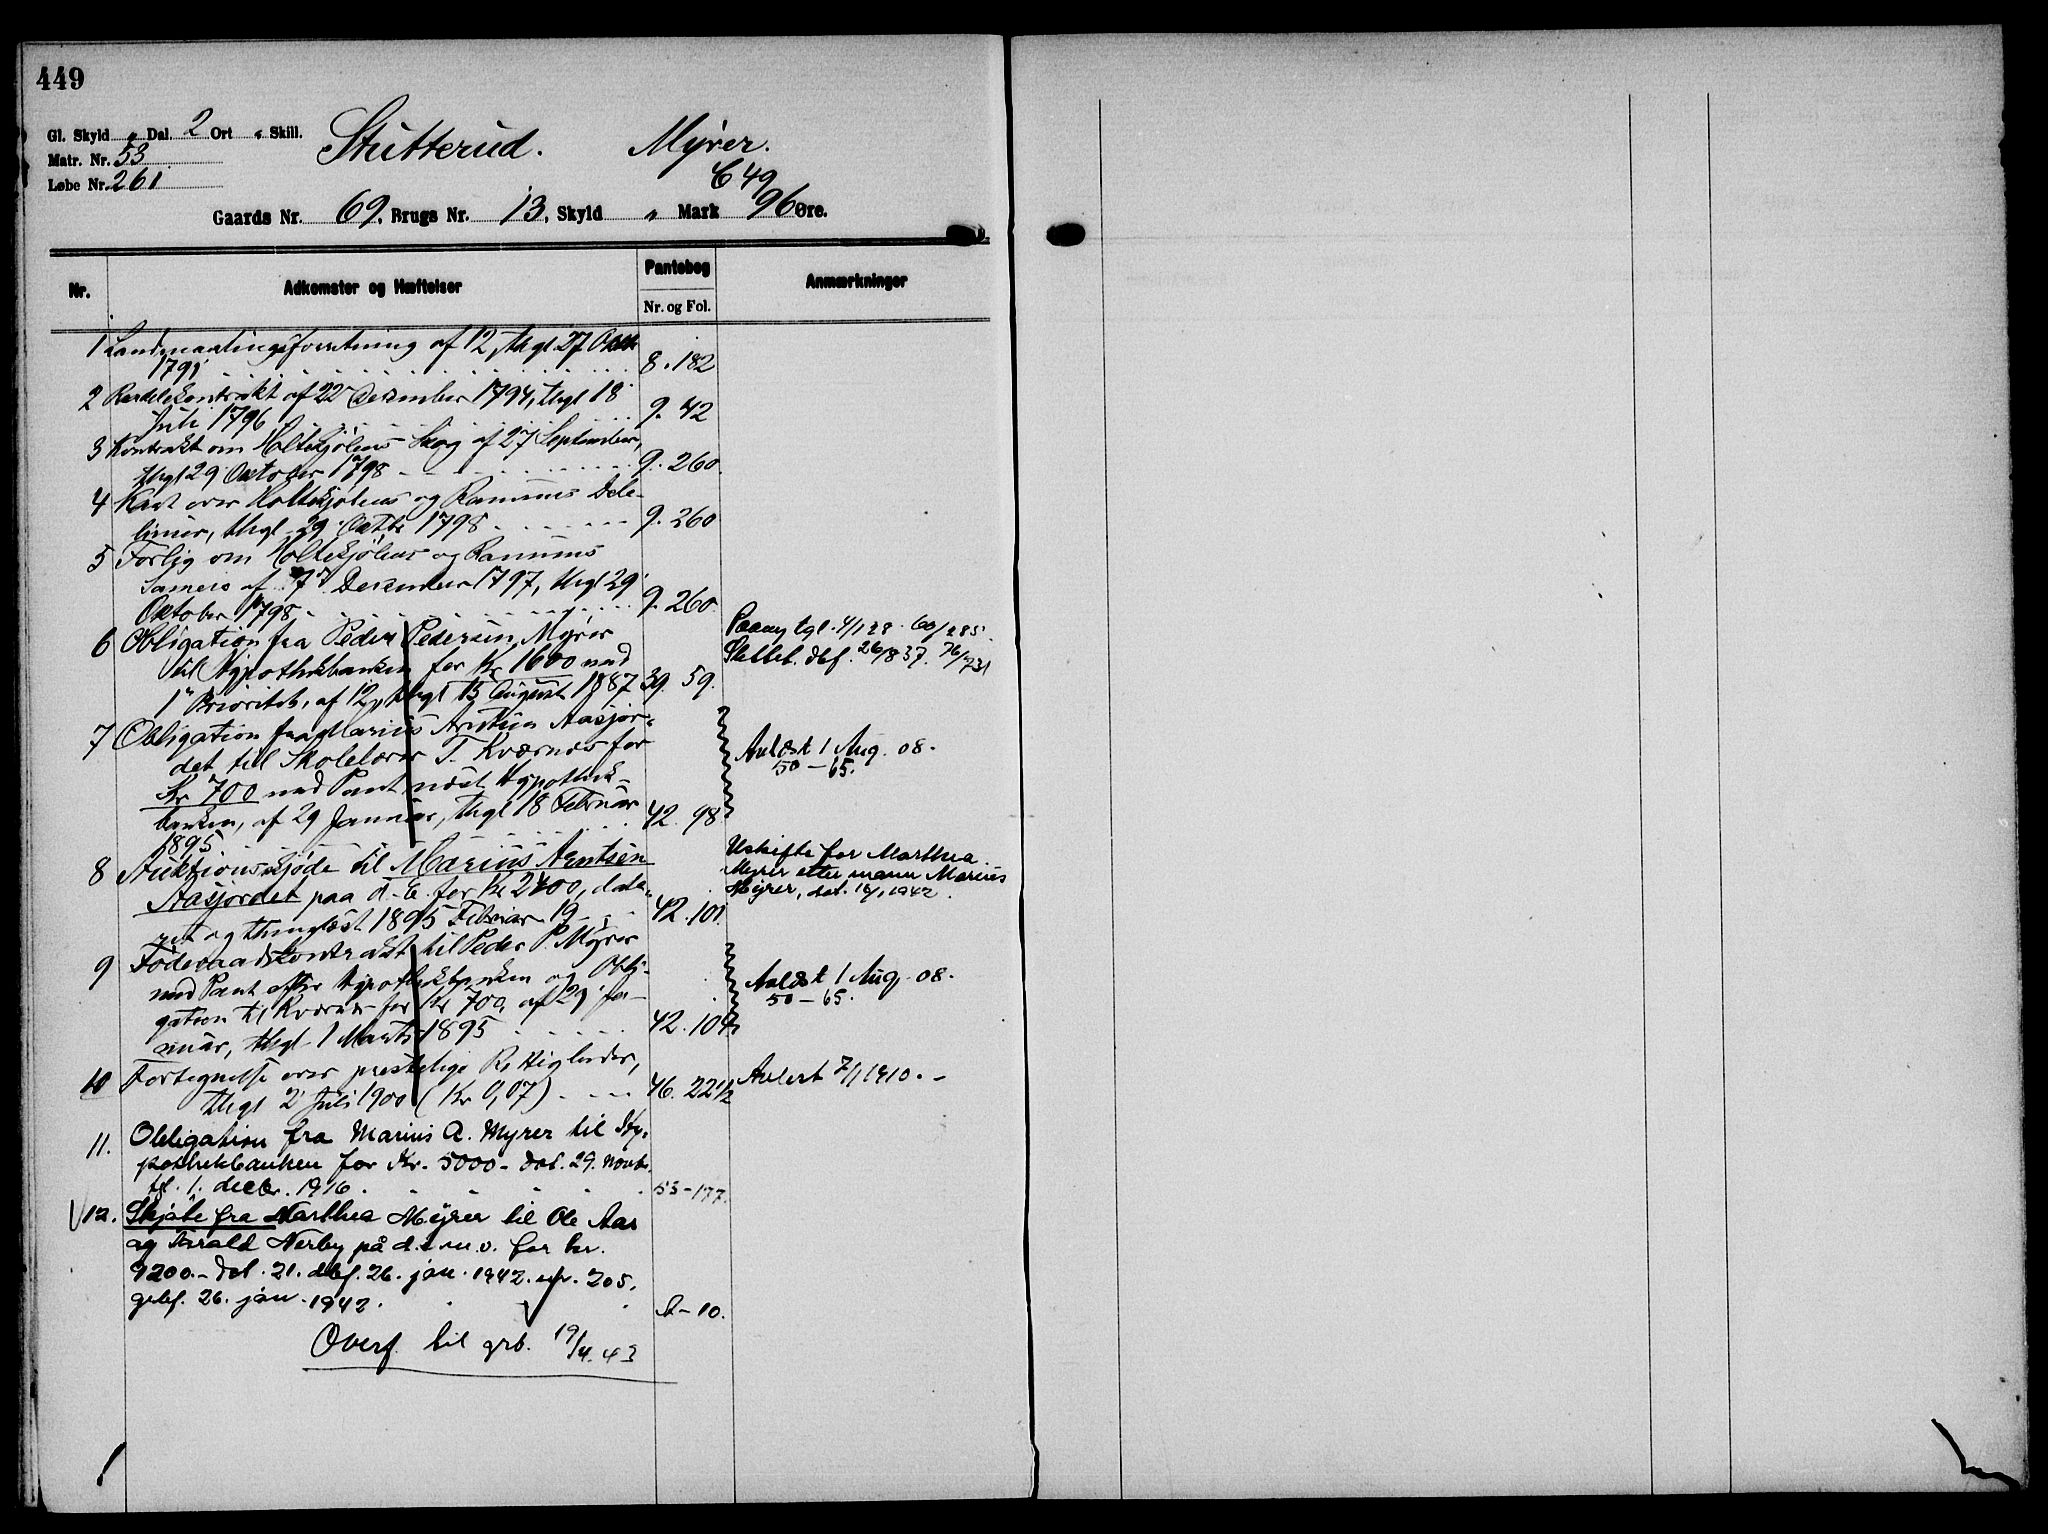 449
Gl. Skyld „ Dal. 2 Ort „ Skill.
Matr. Nr. 53
Løbe Nr. 261
Stutterud. Myrer.
C 49
Gaards Nr. 69, Brugs Nr. 13, Skyld „ Mark 96 Øre.
Nr. Adkomster og Hæftelser Pantebog Anmærkninger
Nr. og Fol.
1 Landmaalingsforretning af 12, thgl 27
1791 8. 182
2 af 22 Dezember 1794, thgl 18
Juli 1796 9. 42
3 Kontrakt om Holtekjølens Skog af 27 September,
thgl 29 Oktober 1798 9. 260.
4 Kart over Holtekjølens og Ramums Dele-
linier, thgl 29 Oktbr 1798 9. 260
5 Forlig om Holtekjølens og Ramums
Sameie af 7 Dezember 1797, thgl 29
Oktober 1798 9. 260.
6 Obligation fra Peder Pedersen Myrer
til Hypothekbanken for Kr 1600 med
1ste Prioritet, af 12, thgl 15 August 1887 39. 59.
Paany tgl. 4/1 28. 60/285.
Slettet. dbf. 26/8 37. 76/731
7 Obligation fra Marius Arntsen Aasjor-
det til Skolelærer T. Kværnæs for
Kr 700 med Pant næst Hypothek-
banken, af 29 Januar, thgl 18 Februar
1895 42. 98
Avlæst 1 Aug. 08.
50 – 65.
8 Auktionsskjøde til Marius Arntsen
Aasjordet paa d. E. for Kr 2400, date-
ret og thinglæst 1895 Februar 19 42. 101.
Uskifte for Marthea
Myrer etter mann Marius
Myrer, dat. 1942.
9 Føderaadskontrakt til Peder P. Myrer
med Pant efter Hypothekbanken og Obli-
gation til Kværnæs for Kr 700, af 29 Ja-
nuar, thgl 1 Marts 1895 42. 104
Avlæst 1 Aug. 08.
50 – 65.
10 Fortegnelse over prestelige Rettigheder,
thgl 2 Juli 1900 (Kr 0,07) 46. 221/2
Avlæst 7/1 1910. –
11. Obligation fra Marius A. Myrer til Hy-
pothekbanken for Kr. 5000 – dat. 29. novbr.
tgl. 1. decbr. 1916. 53 – 177.
12. Skjøte fra Marthea Myrer til Ole Aas
og Harald Nerby på d. e. m. v. for kr.
9200.– dat. 21. dbf. 26. jan. 1942. 205.
gebf. 26. jan. 1942. A – 10.
Overf. til grb. 19/4. 43